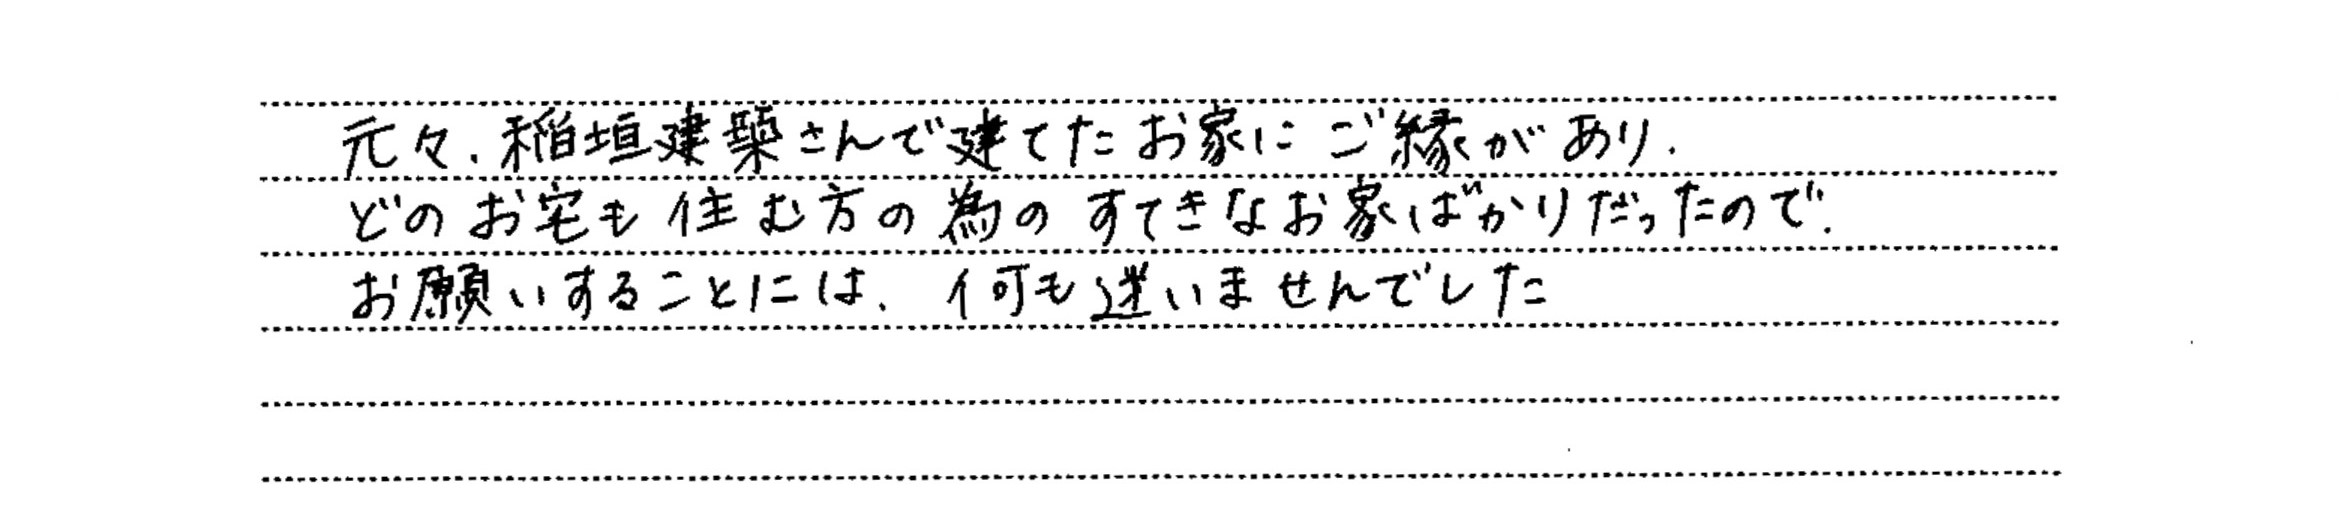 元々、稲垣建築さんで建てたお家にご縁があり、
どのお宅も住む方の為のすてきなお家ばかりだったので、
お願いすることには、何も迷いませんでした